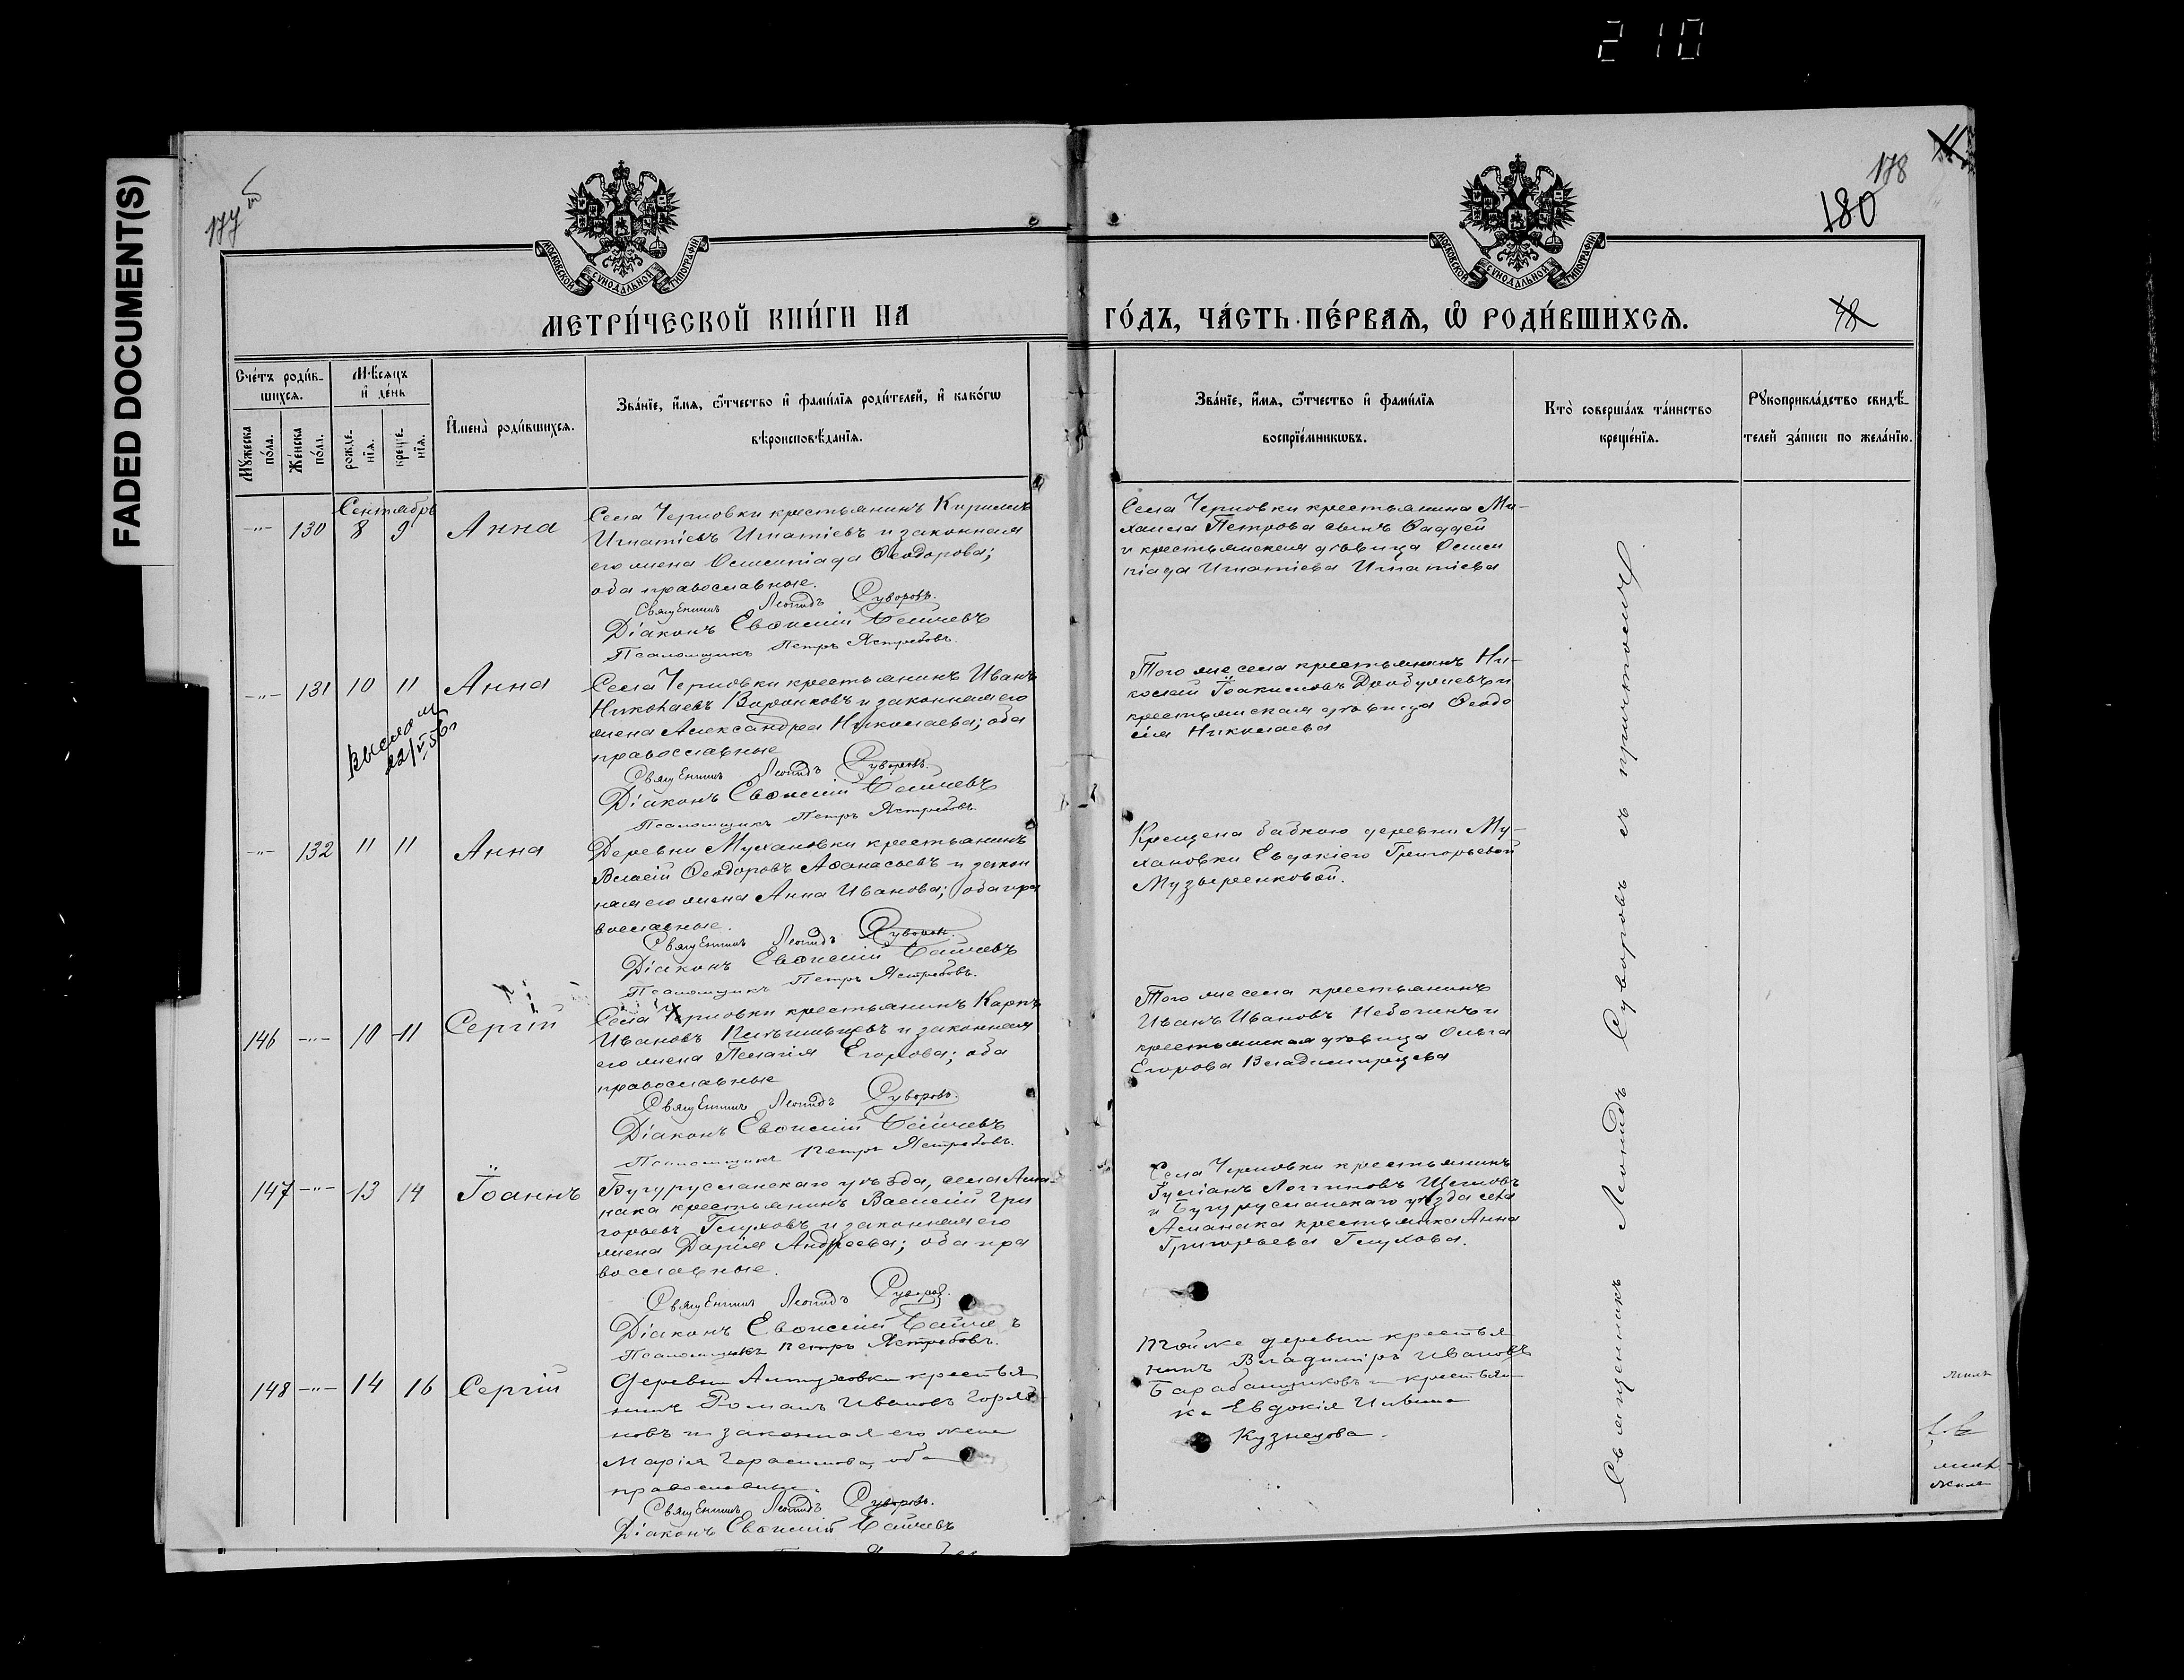 210
FADED DOCUMENT(S)
177 об
178
180
МОСКОВСКОЙ СѴНОДАЛЬНОЙ ТИПОГРАФІИ
МОСКОВСКОЙ СѴНОДАЛЬНОЙ ТИПОГРАФІИ
МЕТРИ́ЧЕСКОЙ КНИ́ГИ НА
ГО́ДЪ, ЧА́СТЬ ПЕ́РВАѦ, Ѽ РОДИ́ВШИХСѦ.
18
Сче́тъ роди́в-
шихсѧ.
Мѣ́сѧцъ
и҆ де́нь
Мꙋ́жеска
по́ла.
Же́нска
по́ла.
рожде-
нїѧ.
креще-
нїѧ.
И҆мена̀ роди́вшихсѧ.
Зва́нїе, и҆́мѧ, ѻ҆́тчество и҆ фами́лїѧ роди́телей, и҆ како́гѡ
вѣроисповѣ́данїѧ.
Зва́нїе, и҆́мѧ, ѻ҆́тчество и҆ фами́лїѧ
воспрїе́мникѡвъ.
Кто̀ соверша́лъ та́инство
креще́нїѧ.
Рꙋкоприкла́дство свидѣ́-
телей за́писи по жела́нїю.
Сентябрь
-"- 130 8 9 Анна
Села Черновки крестьянинъ Кириллъ
Игнатіевъ Игнатіевъ и законная
его жена Олимпіада Ѳеодорова;
оба православные.
Священникъ Леонидъ Суворовъ.
Діаконъ Евѳимій
Псаломщикъ Петръ Ястребовъ.
Села Черновки крестьянина Ми-
хаила Петрова сынъ Ѳаддей
и крестьянская дѣвица Олим
піада Игнатіева Игнатіева
-"- 131 10 11 Анна
выслан
22/V 56г
Села Черновки крестьянинъ Иванъ
Николаевъ Воронковъ и законная его
жена Александра Николаева; оба
православные
Священникъ Леонидъ Суворовъ.
Діаконъ Евѳимій
Псаломщикъ Петръ Ястребовъ.
Того же села крестьянинъ Ни-
колай Іоакимовъ и
крестьянская дѣвица Ѳеодо
сія Николаева
-"- 132 11 11 Анна
Деревни Мухановки крестьянинъ
Власій Ѳеодоровъ Аѳанасьевъ и закон
ная его жена Анна Иванова; оба пра
вославные.
Священникъ Леонидъ Суворовъ.
Діаконъ Евѳимій
Псаломщикъ Петръ Ястребовъ.
Крещена бабкою деревни Му-
хановки Евдокіею Григорьевой
Музыренковой.
146 -"- 10 11 Сергій
Села Черновки крестьянинъ Карпъ
Ивановъ и законная
его жена Пелагія Егорова; оба
православные
Священникъ Леонидъ Суворовъ.
Діаконъ Евѳимій
Псаломщикъ Петръ Ястребовъ.
Того же села крестьянинъ
Иванъ Ивановъ и
крестьянская дѣвица Ольга
Егорова Владимирцева
147 -"- 13 14 Іоаннъ
Бугурусланскаго уѣзда, села Ама-
нака крестьянинъ Василій Гри
горьевъ Глуховъ и законная его
жена Дарія Андреева; оба пра
вославные.
Священникъ Леонидъ Суворовъ.
Діаконъ Евѳимій
Псаломщикъ Петръ Ястребовъ.
Села Черновки крестьянинъ
Іуліанъ Логгиновъ
и Бугурусланскаго уѣзда села
Аманака крестьянка Анна
Григорьева Глухова.
148 -"- 14 16 Сергій
Деревни крестья
нинъ Романъ Ивановъ Горя
новъ и законная его жена
Марія Герасимова, оба
православные.
Священникъ Леонидъ Суворовъ.
Діаконъ Евѳимій
Той же деревни крестья
нинъ Владиміръ Ивановъ
Барабанщиковъ и крестьян
ка Евдокія
Кузнецова.
Священникъ Леонидъ Суворовъ съ причтомъ